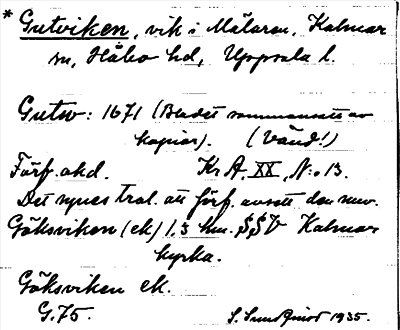 * Gutviken, vik i Mälaren, Kalmar
sn, Håbo hd, Uppsala l.
Gutw: 1671 (Bladet sammansatt av
kopior). (Vänd!)
Förf. okd. Kr A. XX, N:o 13.
Det synes trol. att förf. avsett den nuv.
Göksviken (ek) 1,3 km. SSV Kalmar
kyrka.
Göksviken ek.
G. 75. S. Sundqvist 1935.